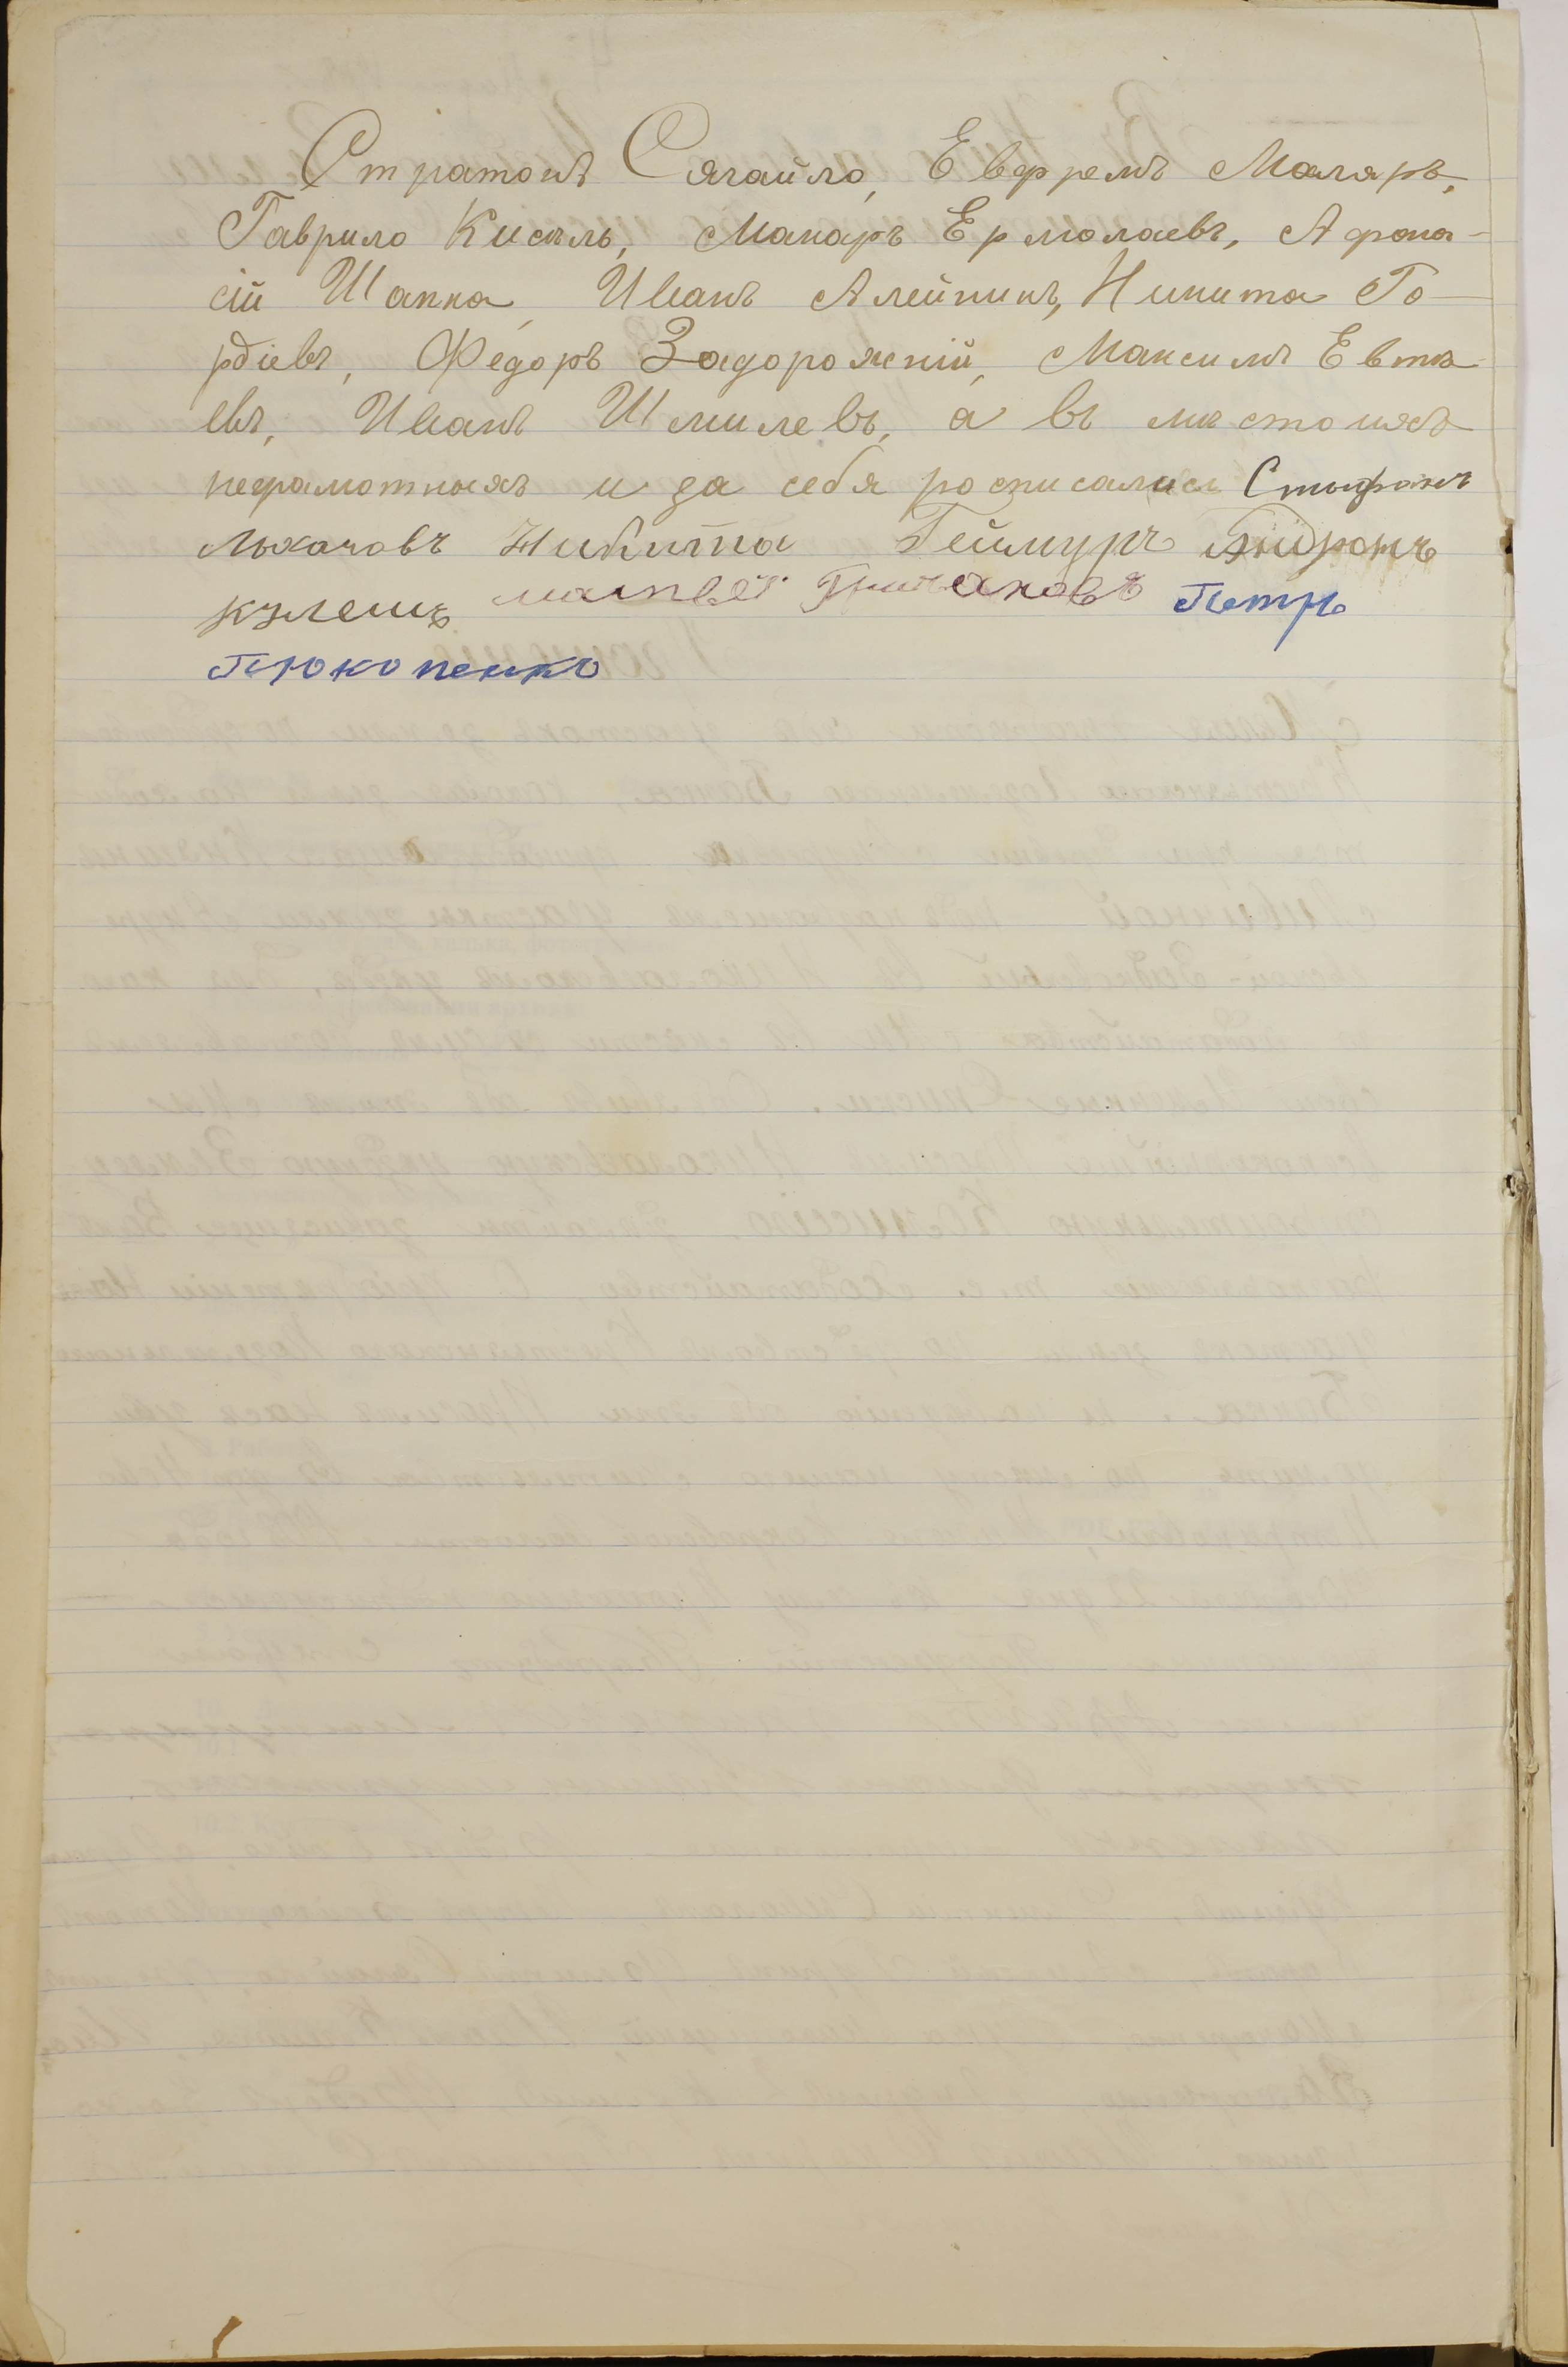 Стратонъ Сягайло, Евфремъ Маляръ,
Гаврило Кисѣль, Макаръ Ермолаевъ, Афона-
сій Шапка, Иванъ Алейникъ, Никита Го-
рдіевъ, Федоръ Задорожній, Максимъ Евтѣ-
евъ, Иванъ Шмилевъ, а въ мѣсто нихъ
неграмотныхъ и за себя росписались Стефанъ
Лыхачовъ Никита Геймуръ Андронъ
Кулешъ матвей Петръ
Прокопенко